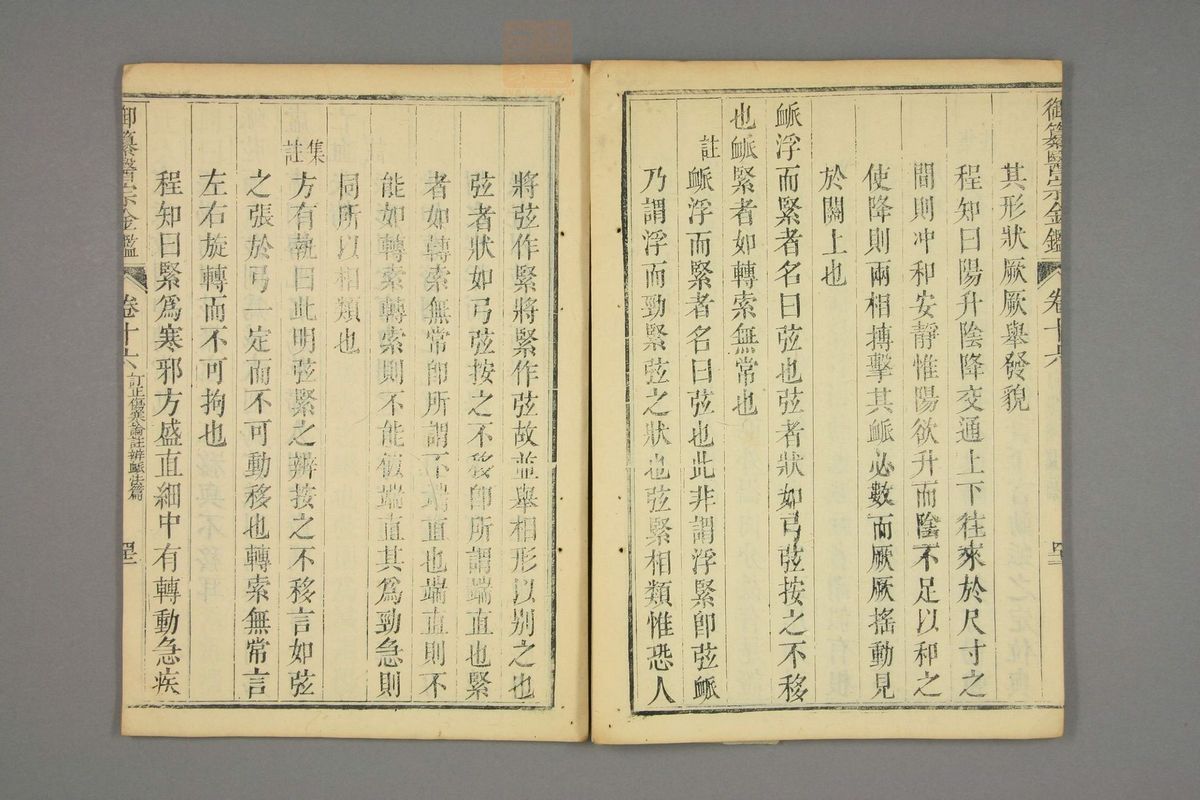 御纂醫宗金鑑
卷十六
其形狀厥厥舉發貌
程知曰陽升陰降交通上下往來於尺寸之
間則冲和安靜惟陽欲升而陰不足以和之
使降則兩相搏擊其脈必數而厥厥搖動見
於關上也
脈浮而緊者名曰弦也弦者狀如弓弦按之不移
也脈緊者如轉索無常也
註
脈浮而緊者名曰弦也此非謂浮緊卽弦脈
乃謂浮而勁緊弦之狀也弦緊相類惟恐人
將弦作緊將緊作弦故並舉相形以別之也
弦者狀如弓弦按之不移卽所謂端直也緊
者如轉索無常卽所謂不端直也端直則不
能如轉索轉索則不能復端直其爲勁急則
同所以相類也
集註
方有執曰此明弦緊之辨按之不移言如弦
之張於弓一定而不可動移也轉索無常言
左右旋轉而不可拘也
程知曰緊爲寒邪方盛直細中有轉動急疾
御纂醫宗金鑑
卷十六
訂正傷寒論註辨脈法篇